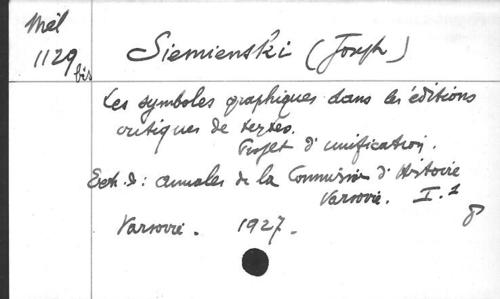 Mél
1129 bis
Siemienski (Joseph)
Les symboles graphiques dans les éditions
critiques de textes.
Projet d'unification.
Extr. de: Annales de la Commission d'Histoire
Varsovie. I.1
Varsovie. 1927.
8